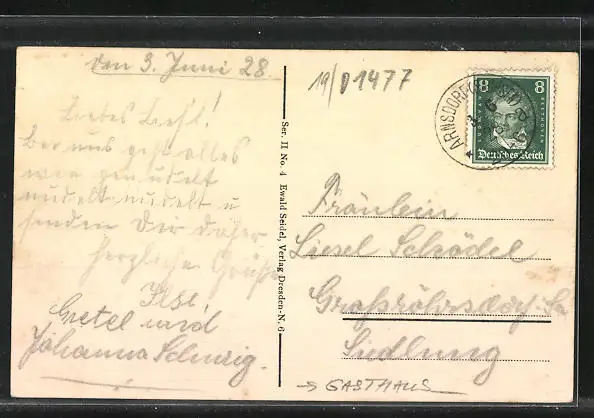 den 3. Juni 28.
Liebes Liesl!
Bei uns geht alles
wie genudelt
nudelt nudelt u
senden Dir daher
herzliche Grüße
Ilse
Gretel und
Johanna Schurig.
Ser. II No. 4 Ewald Seidel, Verlag Dresden-N. 6
19/01477
ARNSDORF
8 8
Deutsches Reich
Fräulein
Liesel Schödel
Großröhrsdorf-Sa
Siedlung
→ GASTHAUS